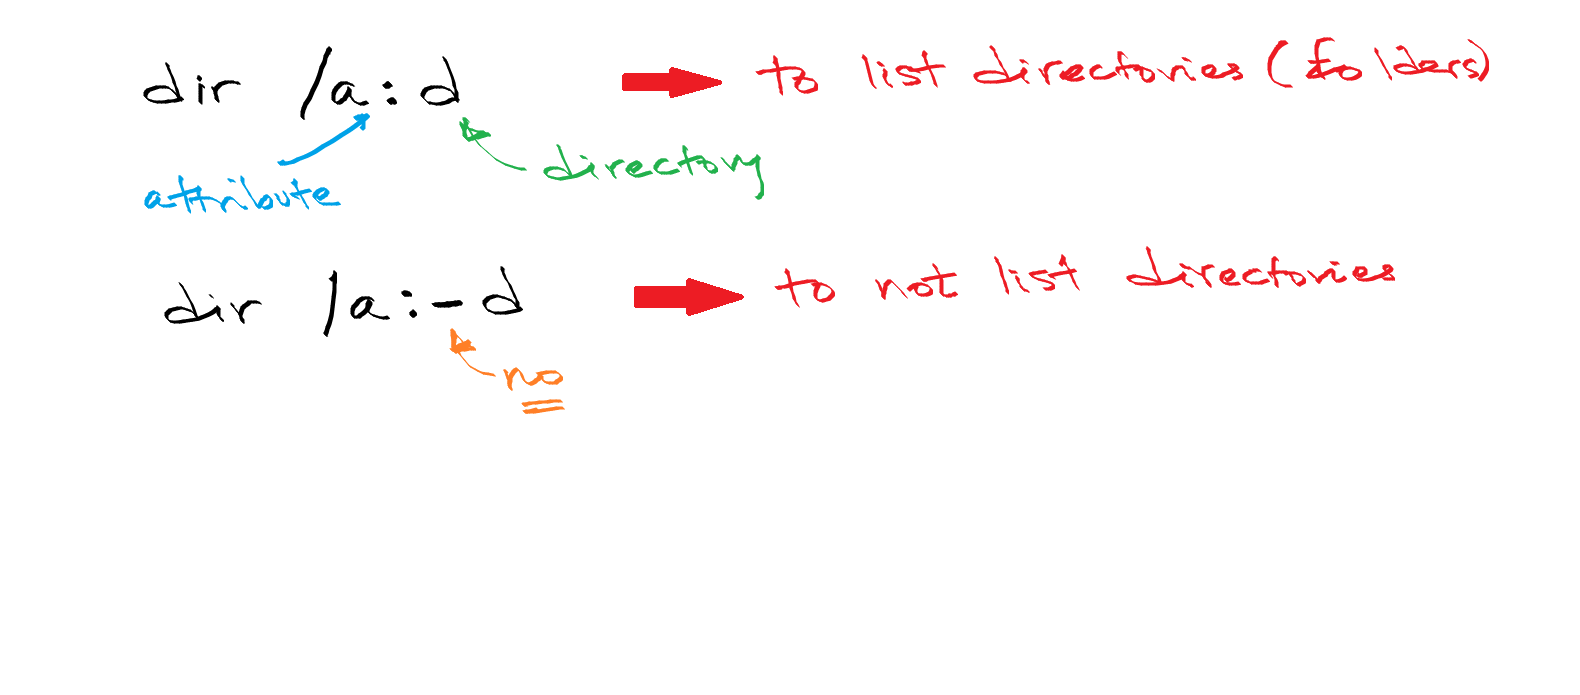 dir /a:d to list directories (folders)
attribute directory
dir /a:-d to not list directories
no